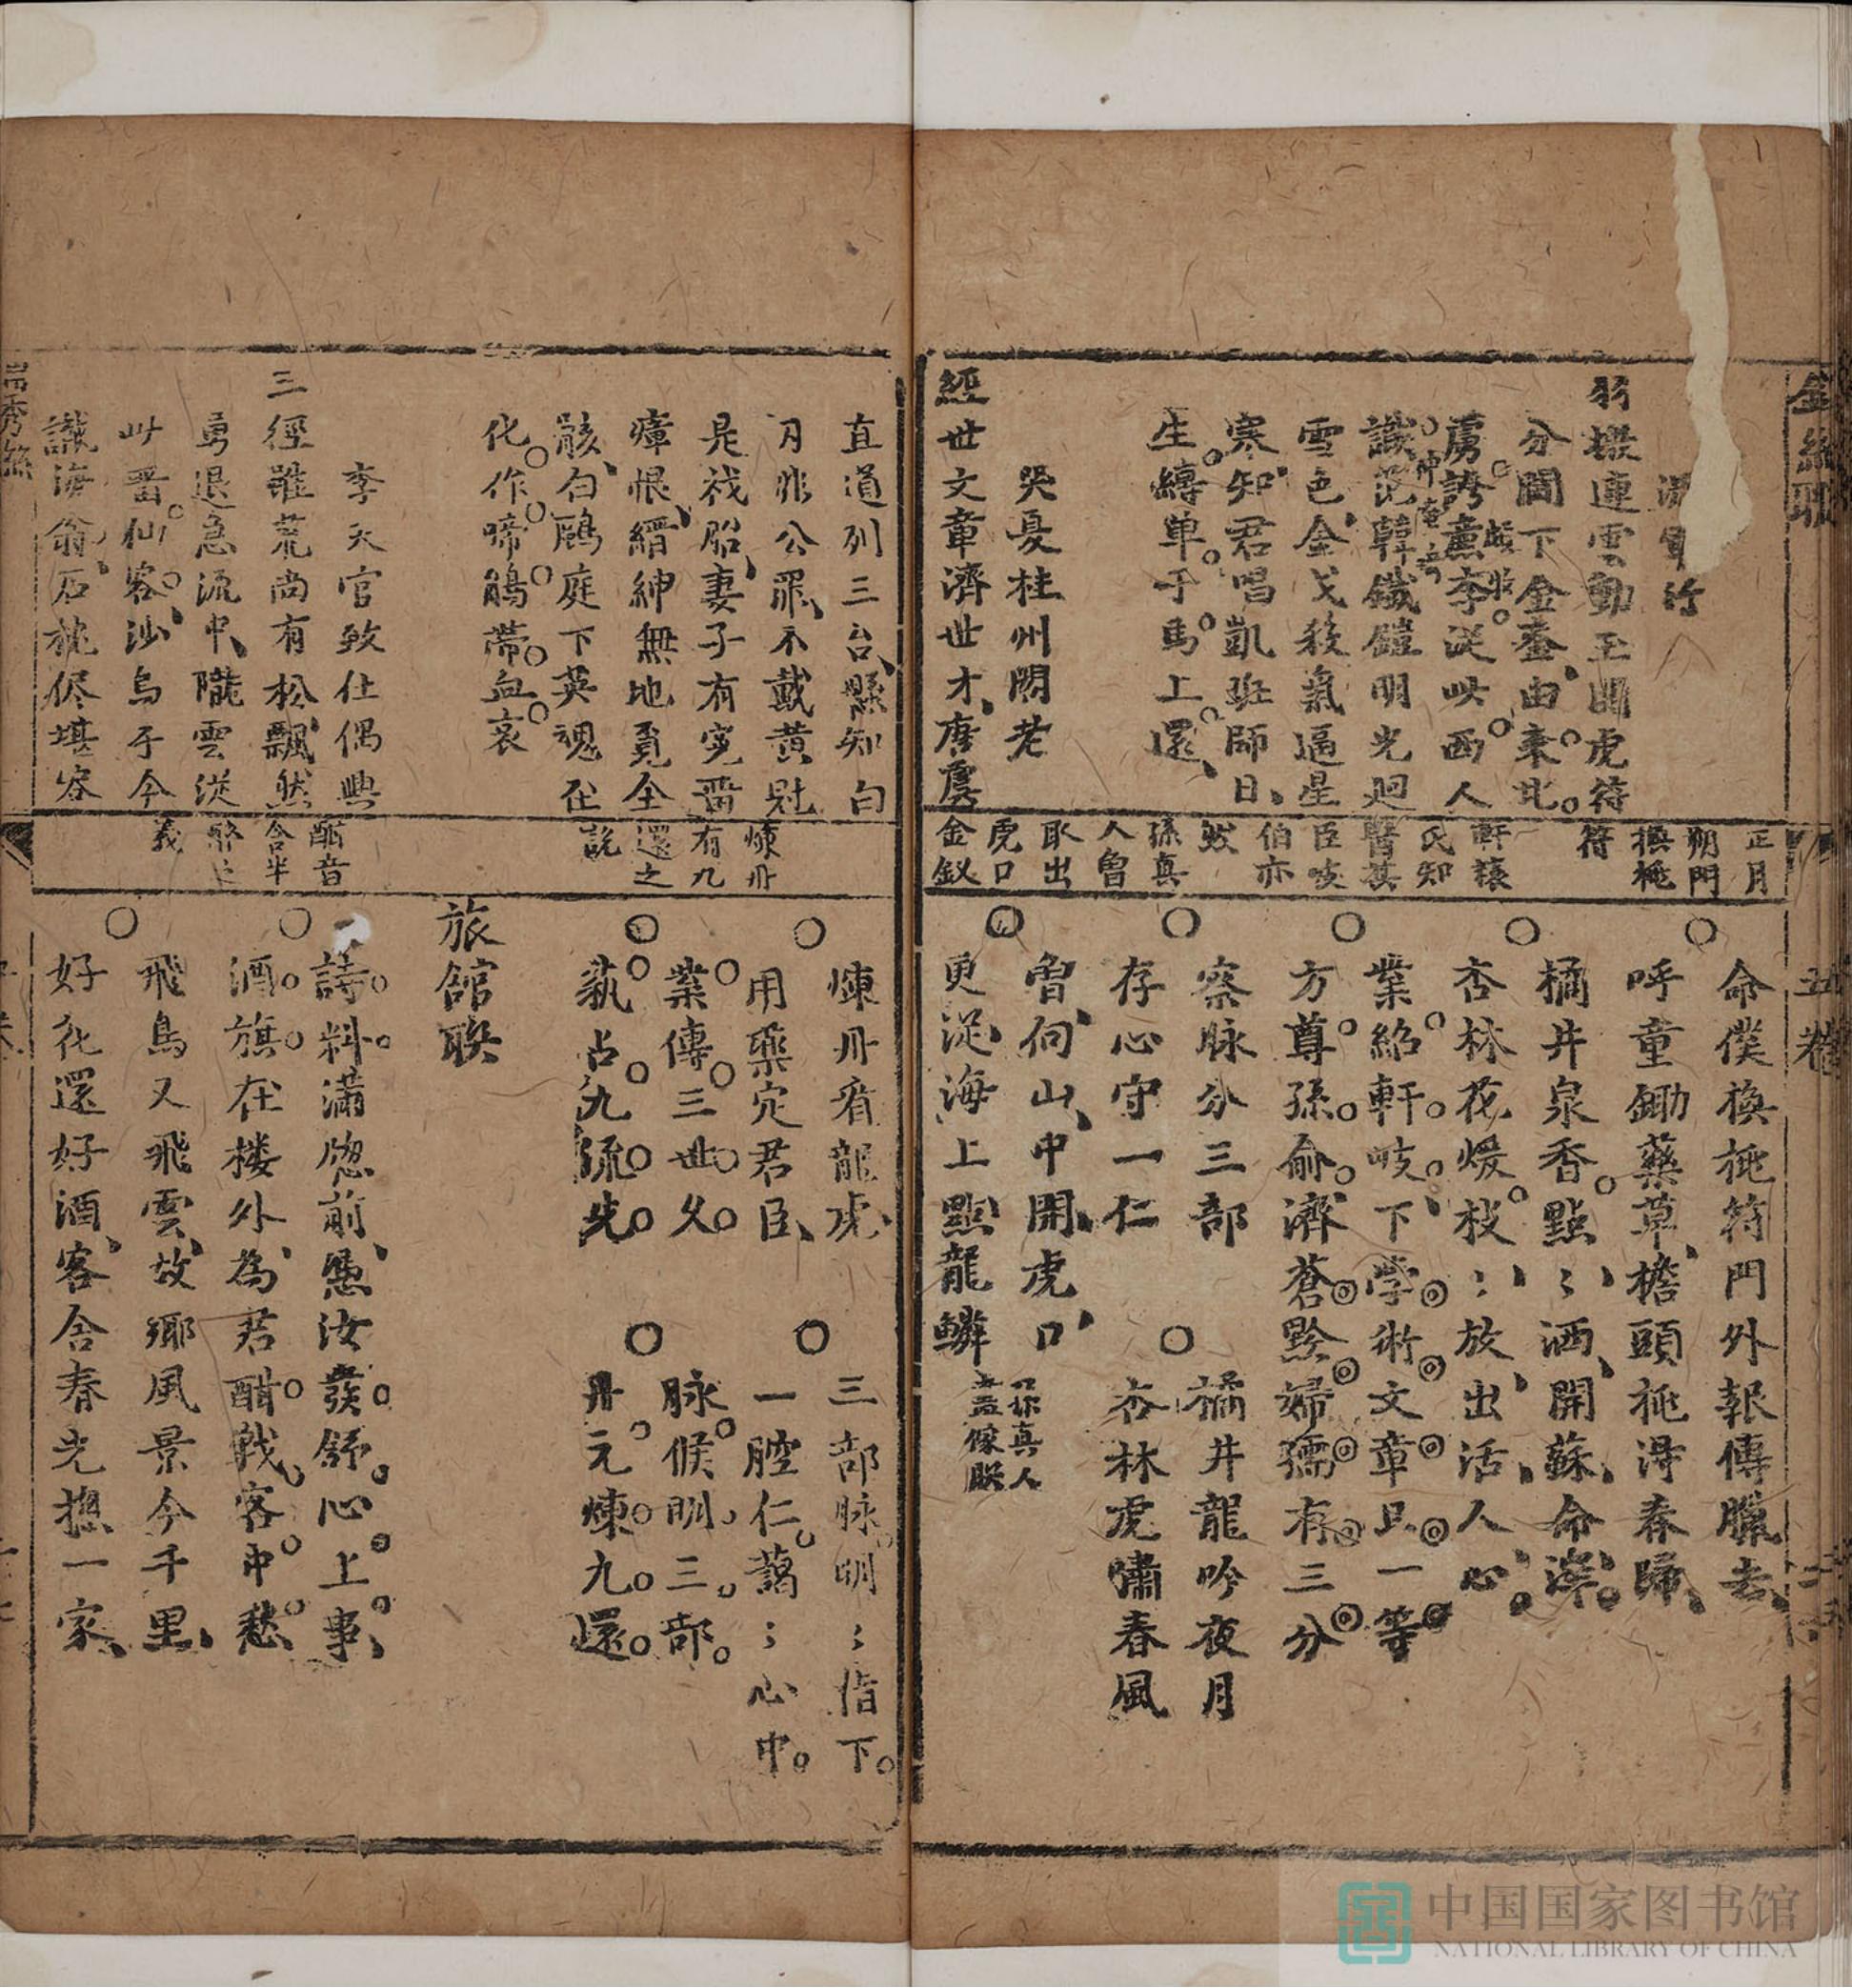 羽檄連雲動玉關虎符
分閫下金臺由來北
虜誇薰李從此西人
識范韓鐵鎧明光迴
雪色金戈殺氣逼星
寒知君唱凱班師日
生縛單于馬上還
哭夏桂州閣老
經世文章濟世才唐虞
正月
朔門
換桃
符
軒轅
氏知
醫其
臣岐
伯亦
孫真
人曾
取出
虎口
金釵
五卷
命僕換桃符門外報傳臘去
呼童鋤藥草檐頭桃得春歸
橘井泉香點〻洒開蘇命澤
杏林花煖枝〻放出活人心
業紹軒岐下學術文章只一等
方尊孫俞濟蒼黔婦孺有三分
察脉分三部
存心守一仁
橘井龍吟夜月
杏林虎嘯春風
曾向山中開虎口
更從海上點龍鱗
直道列三台縣知白
刃非公罪不戴黃
是我胎妻子有冤
瘴恨縉紳無地覓全
骸白鷳庭下英魂在
化作啼鵑帶血哀
李天官致仕偶興
三徑雖荒尚有松飄然
勇退急流中隴雲從
此留仙客沙鳥于今
識海翁石枕侭堪容
煉丹
有九
還之
說
酣音
含半
醉之
義
煉丹看龍虎
用藥定君臣
三部脉明〻指下
一腔仁藹〻心中
業傳三世久
藝占九流先
脉候明三部
丹元煉九還
旅館聯
詩料滿牕前憑汝發舒心上事
酒旗在楼外為君酣戰客中愁
飛鳥又飛雲故鄉風景今千里
好花還好酒客舍春光摠一家
中国国家图书馆
NATIONAL LIBRARY OF CHINA